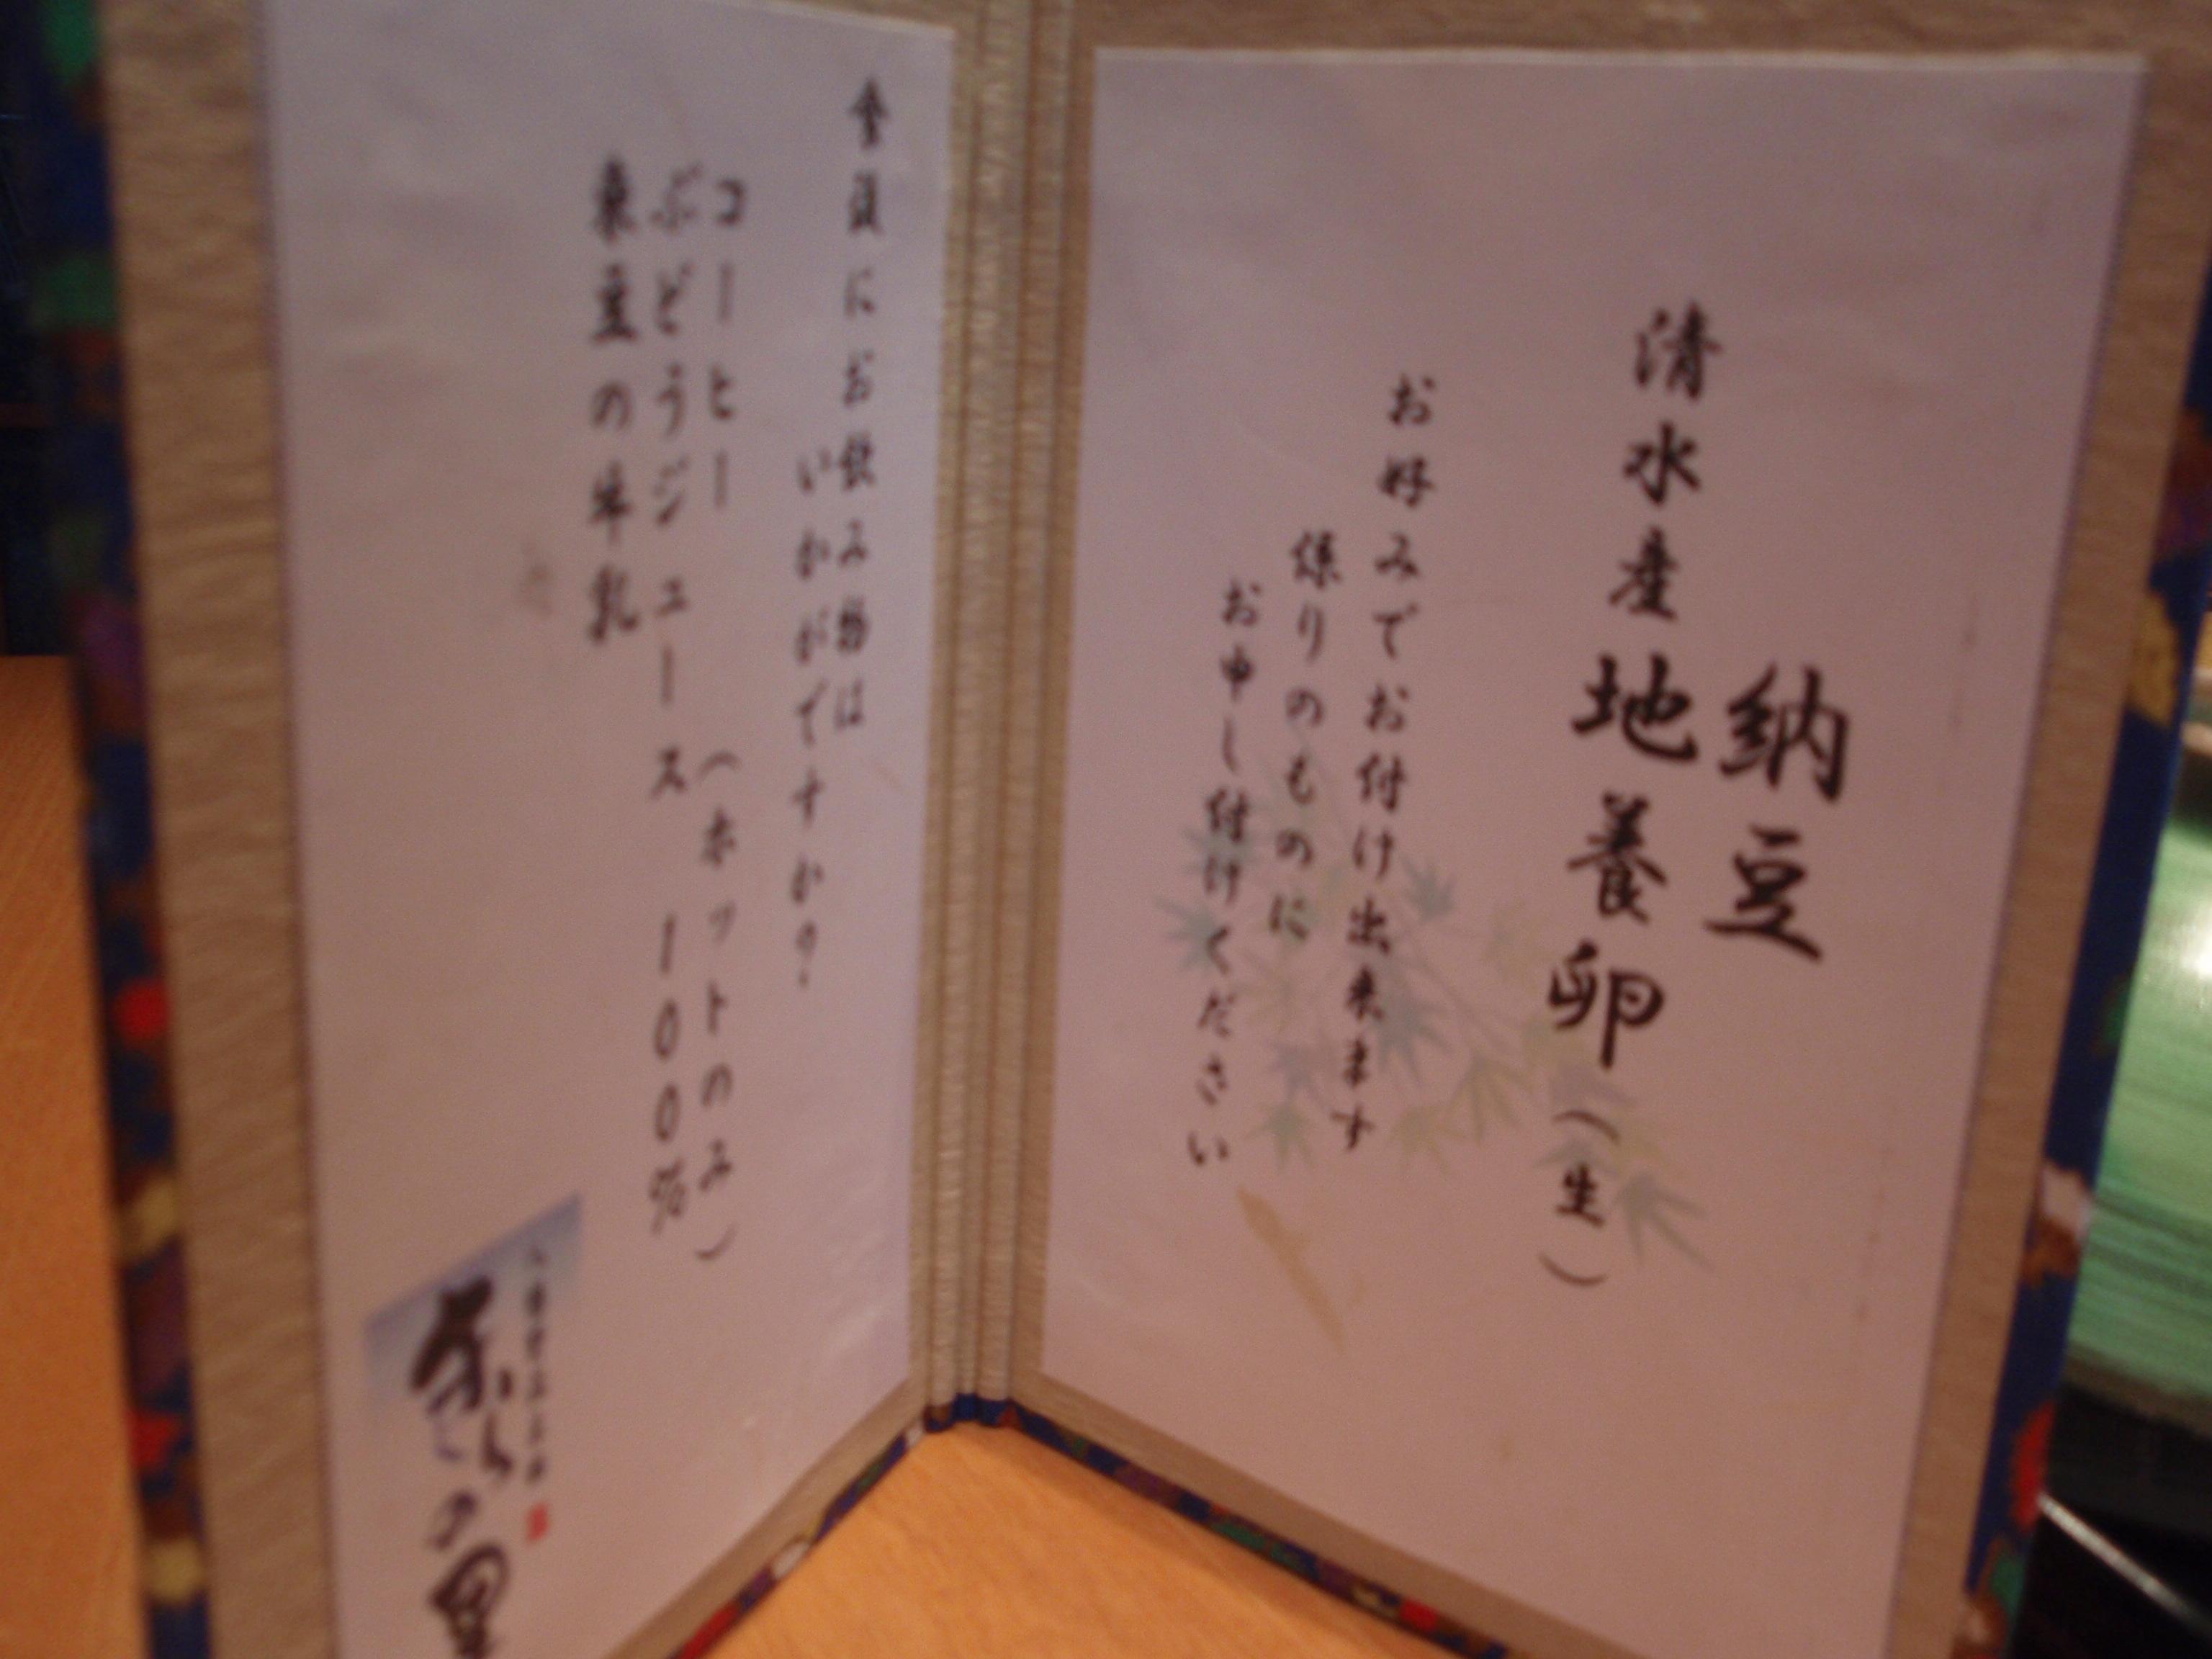 納豆
清水産地養卵（生）
お好みでお付け出来ます
係りのものに
お申し付けください
食後にお飲み物は
いかがですか？
コーヒー　（ホットのみ）
ぶどうジュース　１００％
東豆の牛乳
の里